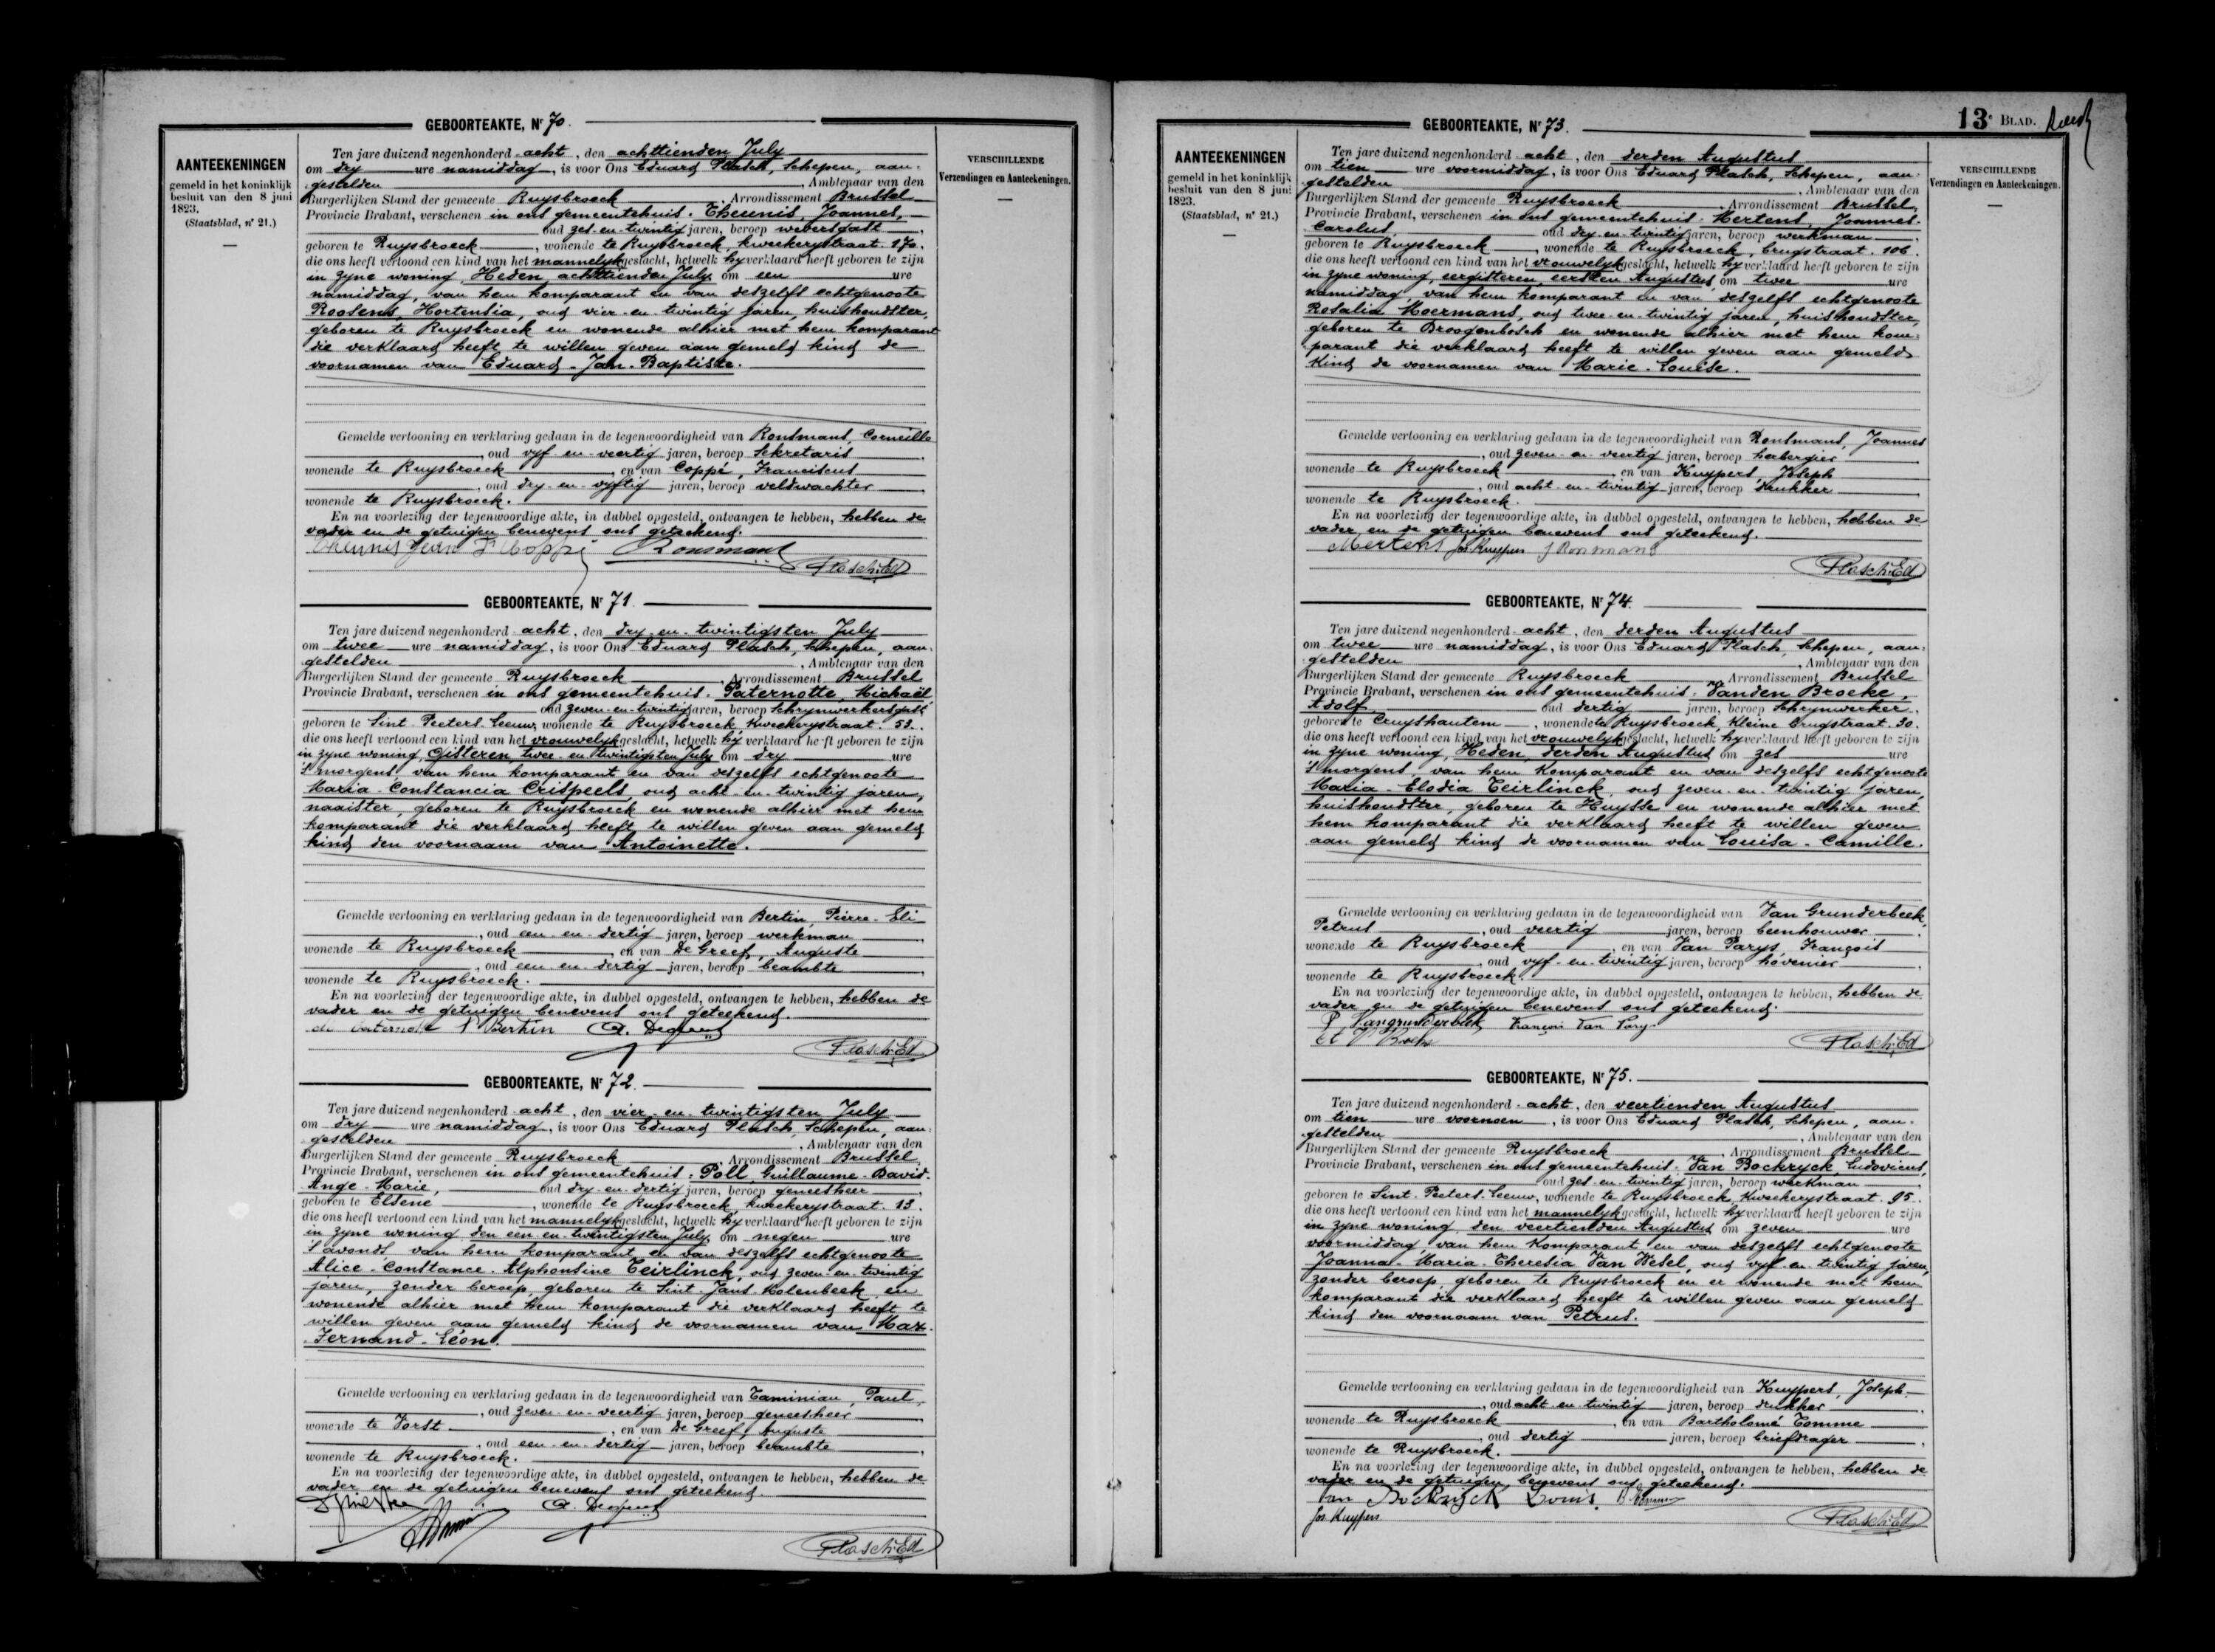 GEBOORTEAKTE, Nr 70.
AANTEEKENINGEN
gemeld in het koninklijk
besluit van den 8 juni
1823.
(Staatsblad, nr 21.)
VERSCHILLENDE
Verzendingen en Aanteekeningen.
Ten jare duizend negenhonderd acht, den achttienden July
om dry ure namiddag, is voor Ons Eduard Plasch, Schepen, aan-
gestelden, Ambtenaar van den
Burgerlijken Stand der gemeente Ruysbroeck, Arrondissement Brussel
Provincie Brabant, verschenen in ons gemeentehuis: Theunis, Joannes,
oud zes-en-twintig jaren, beroep weversgast,
geboren te Ruysbroeck, wonende te Ruysbroeck, kweekerystraat. 170.
die ons heeft vertoond een kind van het mannelyk geslacht, hetwelk hy verklaard heeft geboren te zijn
in zyne woning, Heden, achttienden July om een ure
namiddag, van hem komparant en van deszelfs echtgenoote
Roosens, Hortensia, oud vier-en-twintig jaren, huishoudster,
geboren te Ruysbroeck en wonende alhier met hem komparant
die verklaard heeft te willen geven aan gemeld kind de
voornamen van Eduard-Jan-Baptiste.
Gemelde vertooning en verklaring gedaan in de tegenwoordigheid van Ronsmans, Corneille
, oud vyf-en-veertig jaren, beroep Sekretaris
wonende te Ruysbroeck, en van Coppé, Franciscus
, oud dry-en-vyftig jaren, beroep veldwachter
wonende te Ruysbroeck.
En na voorlezing der tegenwoordige akte, in dubbel opgesteld, ontvangen te hebben, hebben de
vader en de getuigen benevens ons geteekend.
Theunis Jean F Coppé Ronsmans
Plasch.Ed
GEBOORTEAKTE, Nr 71.
Ten jare duizend negenhonderd acht, den dry-en-twintigsten July
om twee ure namiddag, is voor Ons Eduard Plasch, Schepen, aan-
gestelden, Ambtenaar van den
Burgerlijken Stand der gemeente Ruysbroeck, Arrondissement Brussel
Provincie Brabant, verschenen in ons gemeentehuis: Paternotte, Michaël
oud zeven-en-twintig jaren, beroep Schrynwerkersgast
geboren te Sint-Peeters-Leeuw, wonende te Ruysbroeck, Kweekerystraat. 53.
die ons heeft vertoond een kind van het vrouwelyk geslacht, hetwelk hy verklaard heeft geboren te zijn
in zyne woning, Gisteren, twee-en-twintigsten July om dry ure
's morgens, van hem komparant en van deszelfs echtgenoote
Maria-Constancia Crispeels, oud acht-en-twintig jaren,
naaister, geboren te Ruysbroeck en wonende alhier met hem
komparant die verklaard heeft te willen geven aan gemeld
kind den voornaam van Antoinette.
Gemelde vertooning en verklaring gedaan in de tegenwoordigheid van Bertin, Pierre-Eli
, oud een-en-dertig jaren, beroep werkman
wonende te Ruysbroeck, en van De Greef, Auguste
, oud een-en-dertig jaren, beroep beambte
wonende te Ruysbroeck.
En na voorlezing der tegenwoordige akte, in dubbel opgesteld, ontvangen te hebben, hebben de
vader en de getuigen benevens ons geteekend.
Paternotte P Bertin A. Degreef
Plasch.Ed
GEBOORTEAKTE, Nr 72.
Ten jare duizend negenhonderd acht, den vier-en-twintigsten July
om dry ure namiddag, is voor Ons Eduard Plasch, Schepen, aan-
gestelden, Ambtenaar van den
Burgerlijken Stand der gemeente Ruysbroeck, Arrondissement Brussel
Provincie Brabant, verschenen in ons gemeentehuis: Poll, Guillaume-David-
Ange-Marie, oud dry-en-dertig jaren, beroep geneesheer
geboren te Elsene, wonende te Ruysbroeck, kweekerystraat. 13.
die ons heeft vertoond een kind van het mannelyk geslacht, hetwelk hy verklaard heeft geboren te zijn
in zyne woning, den een-en-twintigsten July om negen ure
's avonds, van hem komparant en van deszelfs echtgenoote
Alice-Constance-Alphonsine Teirlinck, oud zeven-en-twintig
jaren, zonder beroep, geboren te Sint-Jans-Molenbeek en
wonende alhier met hem komparant die verklaard heeft te
willen geven aan gemeld kind de voornamen van Max-
Fernand-Léon.
Gemelde vertooning en verklaring gedaan in de tegenwoordigheid van Taminiau, Paul,
, oud zeven-en-veertig jaren, beroep geneesheer
wonende te Vorst, en van De Greef, Auguste
, oud een-en-dertig jaren, beroep beambte
wonende te Ruysbroeck.
En na voorlezing der tegenwoordige akte, in dubbel opgesteld, ontvangen te hebben, hebben de
vader en de getuigen benevens ons geteekend.
A. Degreef
Plasch.Ed
13e BLAD.
GEBOORTEAKTE, Nr 73.
AANTEEKENINGEN
gemeld in het koninklijk
besluit van den 8 juni
1823.
(Staatsblad, nr 21.)
VERSCHILLENDE
Verzendingen en Aanteekeningen.
Ten jare duizend negenhonderd acht, den derden Augustus
om tien ure voormiddag, is voor Ons Eduard Plasch, Schepen, aan-
gestelden, Ambtenaar van den
Burgerlijken Stand der gemeente Ruysbroeck, Arrondissement Brussel
Provincie Brabant, verschenen in ons gemeentehuis: Mertens, Joannes-
Carolus, oud dry-en-twintig jaren, beroep werkman
geboren te Ruysbroeck, wonende te Ruysbroeck, brugstraat. 106.
die ons heeft vertoond een kind van het vrouwelyk geslacht, hetwelk hy verklaard heeft geboren te zijn
in zyne woning, eergisteren, eersten Augustus, om twee ure
namiddag, van hem komparant en van deszelfs echtgenoote
Rosalia Moermans, oud twee-en-twintig jaren, huishoudster,
geboren te Droogenbosch en wonende alhier met hem kom-
parant die verklaard heeft te willen geven aan gemeld
kind de voornamen van Marie-Louise.
Gemelde vertooning en verklaring gedaan in de tegenwoordigheid van Ronsmans, Joannes
, oud zeven-en-veertig jaren, beroep herbergier
wonende te Ruysbroeck, en van Kuypers, Joseph
, oud acht-en-twintig jaren, beroep drukker
wonende te Ruysbroeck.
En na voorlezing der tegenwoordige akte, in dubbel opgesteld, ontvangen te hebben, hebben de
vader en de getuigen benevens ons geteekend.
Mertens Jos Kuypers J Ronsmans
Plasch.Ed
GEBOORTEAKTE, Nr 74.
Ten jare duizend negenhonderd acht, den derden Augustus
om twee ure namiddag, is voor Ons Eduard Plasch, Schepen, aan-
gestelden, Ambtenaar van den
Burgerlijken Stand der gemeente Ruysbroeck, Arrondissement Brussel
Provincie Brabant, verschenen in ons gemeentehuis: Vanden Broeke,
Adolf, oud dertig jaren, beroep Schrynwerker,
geboren te Cruyshautem, wonende te Ruysbroeck, Kleine brugstraat. 30.
die ons heeft vertoond een kind van het vrouwelyk geslacht, hetwelk hy verklaard heeft geboren te zijn
in zyne woning, Heden, derden Augustus om zes ure
's morgens, van hem Komparant en van deszelfs echtgenoote
Maria-Elodia Teirlinck, oud zeven-en-twintig jaren,
huishoudster, geboren te Huysse en wonende alhier met
hem komparant die verklaard heeft te willen geven
aan gemeld kind de voornamen van Louisa-Camille.
Gemelde vertooning en verklaring gedaan in de tegenwoordigheid van Van Grunderbeek,
Petrus, oud veertig jaren, beroep beenhouwer
wonende te Ruysbroeck, en van Van Parys, François
, oud vyf-en-twintig jaren, beroep hovenier
wonende te Ruysbroeck.
En na voorlezing der tegenwoordige akte, in dubbel opgesteld, ontvangen te hebben, hebben de
vader en de getuigen benevens ons geteekend.
P Vangrunderbeek François Van Parys
Plasch.Ed
GEBOORTEAKTE, Nr 75.
Ten jare duizend negenhonderd acht, den veertienden Augustus
om tien ure voornoen, is voor Ons Eduard Plasch, Schepen, aan-
gestelden, Ambtenaar van den
Burgerlijken Stand der gemeente Ruysbroeck, Arrondissement Brussel
Provincie Brabant, verschenen in ons gemeentehuis: Van Bockryck, Ludovicus,
oud zes-en-twintig jaren, beroep werkman
geboren te Sint-Peeters-Leeuw, wonende te Ruysbroeck, Kweekerystraat. 95.
die ons heeft vertoond een kind van het mannelyk geslacht, hetwelk hy verklaard heeft geboren te zijn
in zyne woning, den veertienden Augustus om zeven ure
voormiddag, van hem Komparant en van deszelfs echtgenoote
Joanna-Maria-Theresia Van Wesel, oud vyf-en-twintig jaren,
zonder beroep, geboren te Ruysbroeck en er wonende met hem
komparant die verklaard heeft te willen geven aan gemeld
kind den voornaam van Petrus.
Gemelde vertooning en verklaring gedaan in de tegenwoordigheid van Kuypers, Joseph
, oud acht-en-twintig jaren, beroep drukker
wonende te Ruysbroeck, en van Bartholomé Tomme
, oud dertig jaren, beroep briefdrager
wonende te Ruysbroeck.
En na voorlezing der tegenwoordige akte, in dubbel opgesteld, ontvangen te hebben, hebben de
vader en de getuigen benevens ons geteekend.
Van Bockryck Louis
Jos Kuypers
Plasch.Ed